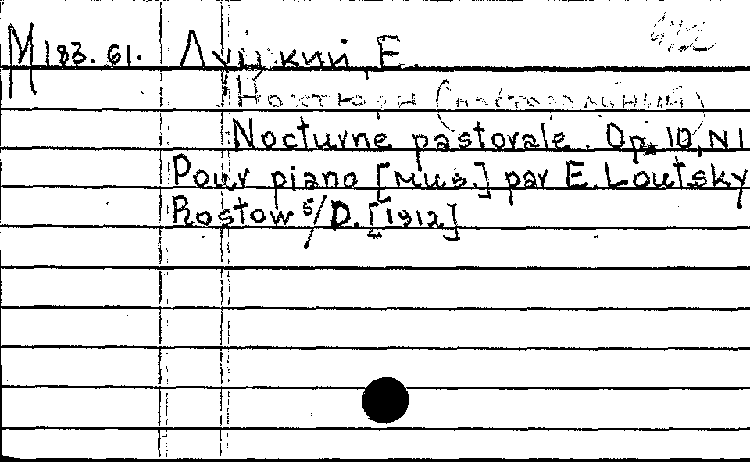 М 183.61. Луцкий, Е.
Ноктюрн (пасторальный)
Nocturne pastorale. Op. 10, N 1
Pour piano [муз.] par E. Loutsky
Rostow s/D. [1912]